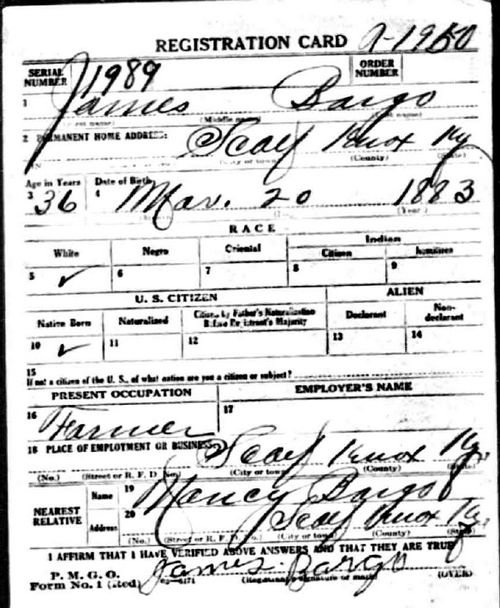 REGISTRATION CARD
SERIAL NUMBER 1989 ORDER NUMBER
1 James Bargo
(Middle name)
2 PERMANENT HOME ADDRESS: Scalf Knox Ky
(County) (State)
Age in Years Date of Birth
3 36 4 Mar. 20 1883
(Year)
RACE
White Negro Oriental Indian
Citizen Noncitizen
5 ✓ 6 7 8 9
U. S. CITIZEN ALIEN
Native Born Naturalized Citizen by Father's Naturalization Before Registrant's Majority Declarant Non-declarant
10 ✓ 11 12 13 14
15
If not a citizen of the U. S., of what nation are you a citizen or subject?
PRESENT OCCUPATION EMPLOYER'S NAME
16 Farmer 17
18 PLACE OF EMPLOYMENT OR BUSINESS: Scalf Knox Ky
(No.) (Street or R. F. D. No.) (City or town) (County) (State)
NEAREST RELATIVE Name 19 Nancy Bargo
Address 20 Scalf Knox Ky
(No.) (Street or R. F. D. No.) (City or town) (County) (State)
I AFFIRM THAT I HAVE VERIFIED ABOVE ANSWERS AND THAT THEY ARE TRUE
P. M. G. O.
Form No. 1 James Bargo
(Registrant's signature or mark) (OVER)